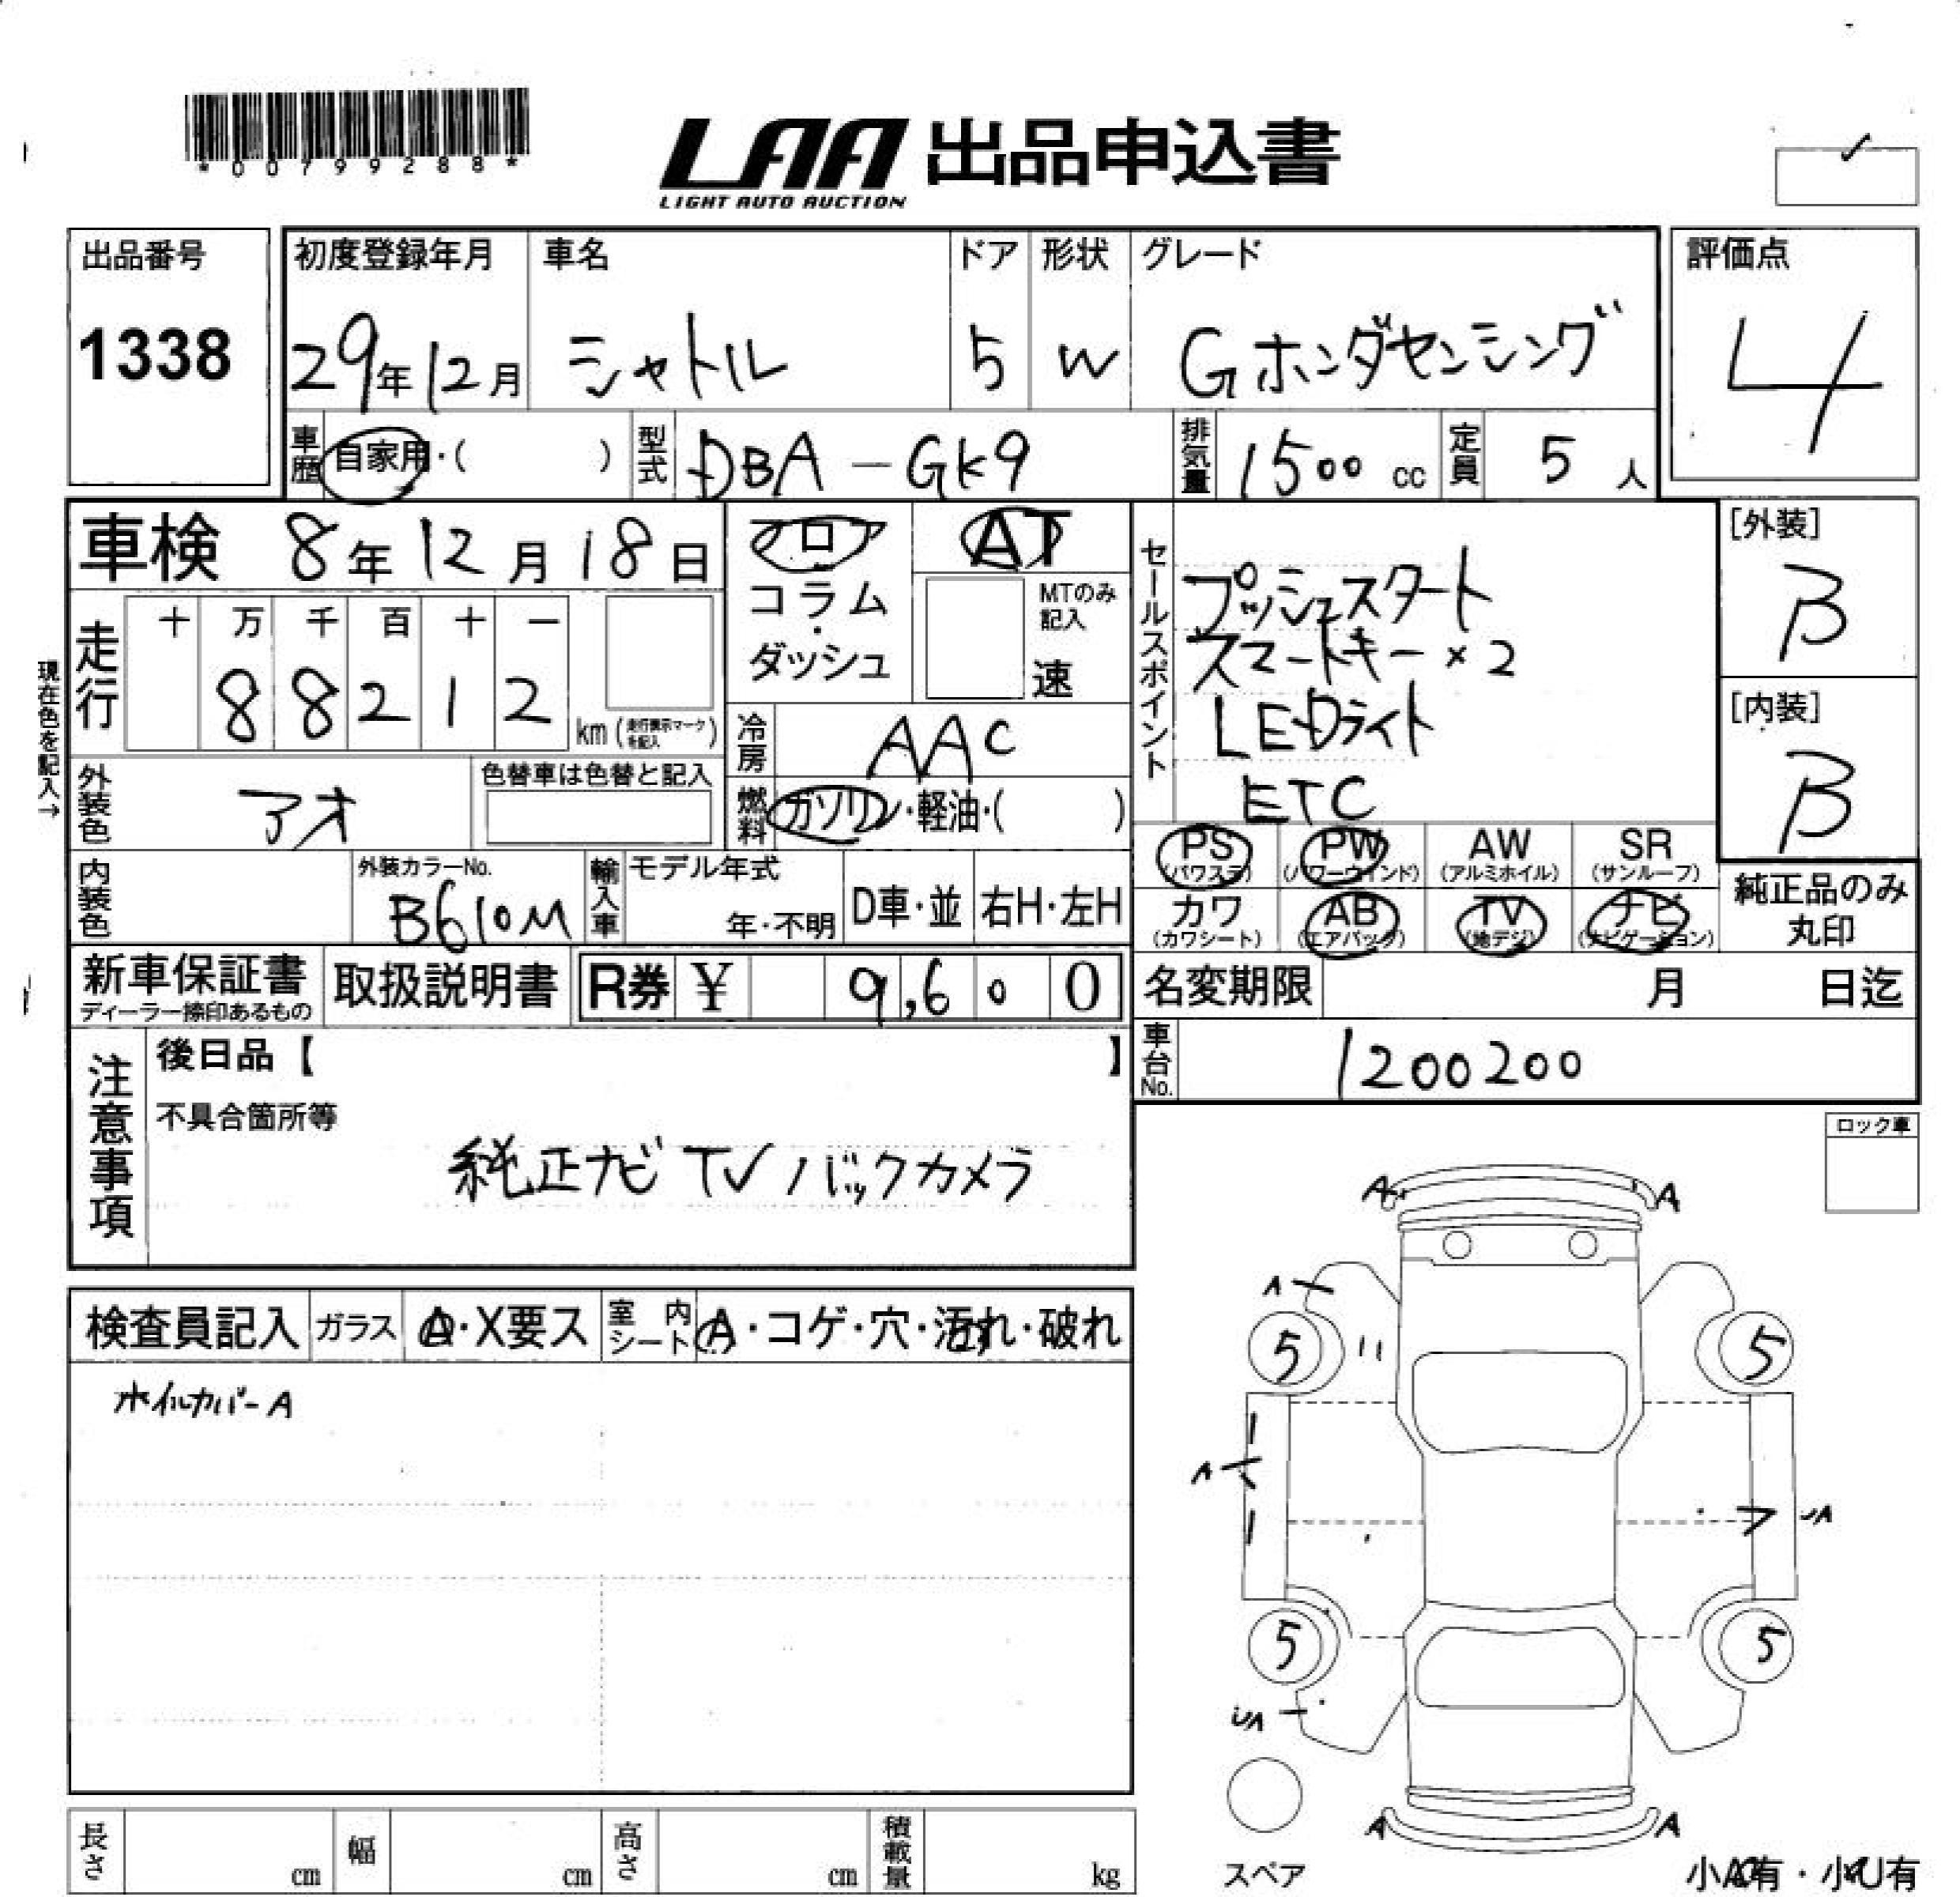 *00799288*
LAA 出品申込書
LIGHT AUTO AUCTION
出品番号
1338
初度登録年月
29年12月
車名
シャトル
ドア
5
形状
W
グレード
Gホンダセンシング
評価点
4
車歴
自家用・( )
型式
DBA-GK9
排気量
1500 cc
定員
5 人
車検 8年12月18日
フロア
コラム
・
ダッシュ
AT
MTのみ
記入
速
セールスポイント
プッシュスタート
スマートキー×2
LEDライト
ETC
[外装]
B
[内装]
B
現在色を記入→
走行
十 万 千 百 十 一
8 8 2 1 2
km(走行表示マークを記入)
冷房
AAC
外装色
アオ
色替車は色替と記入
燃料
ガソリン・軽油・( )
PS
(パワステ)
PW
(パワーウインド)
AW
(アルミホイル)
SR
(サンルーフ)
カワ
(カワシート)
AB
(エアバック)
TV
(地デジ)
ナビ
(ナビゲーション)
純正品のみ
丸印
内装色
外装カラーNo.
B610M
輸入車
モデル年式
年・不明
D車・並
右H・左H
新車保証書
ディーラー捺印あるもの
取扱説明書
R券 ¥ 9,600
名変期限
月 日迄
車台No.
1200200
注意事項
後日品【 】
不具合箇所等
純正ナビ TV バックカメラ
ロック車
検査員記入
ガラス
A・X要ス
室内
シート
A・コゲ・穴・汚れ・破れ
ホイルカバーA
A A
A
5 5
A
UA
5 5
UA
A A
スペア
小A有・小U有
長さ cm
幅 cm
高さ cm
積載量 kg